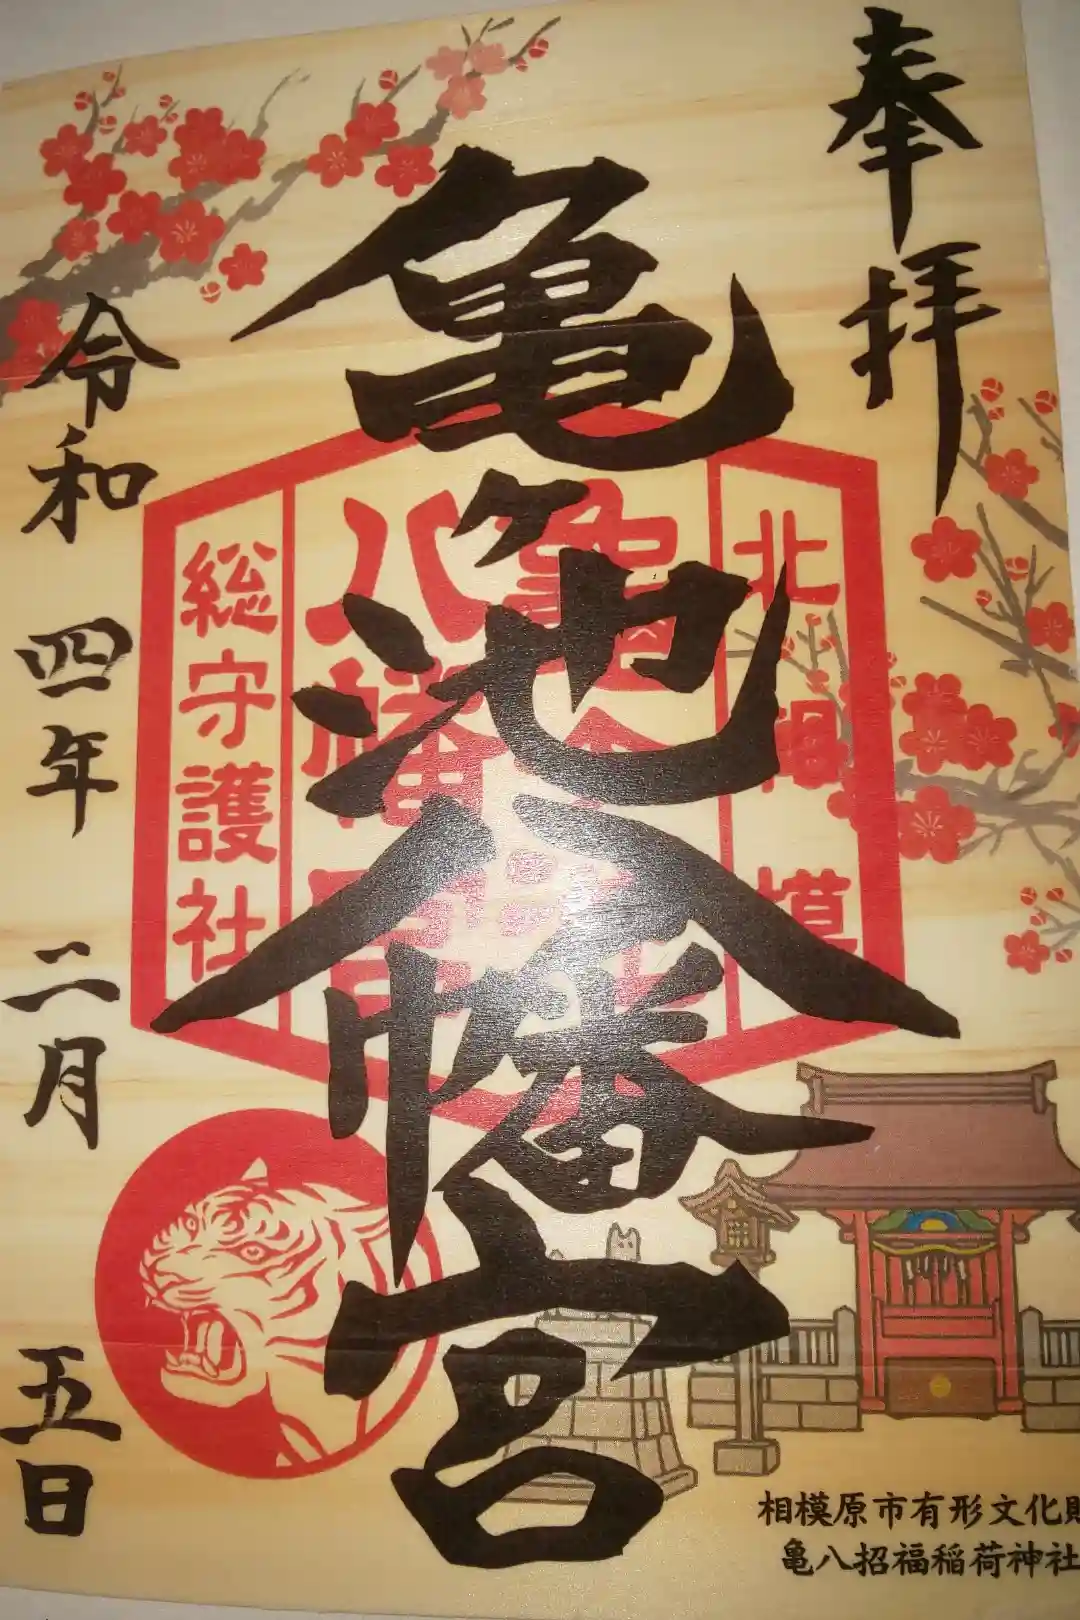 奉拝
亀ヶ池八幡宮
北相模
総守護社
令和四年二月五日
相模原市有形文化財
亀八招福稲荷神社